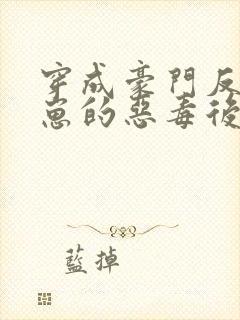 穿成豪門反
崽的惡毒後
藍掉